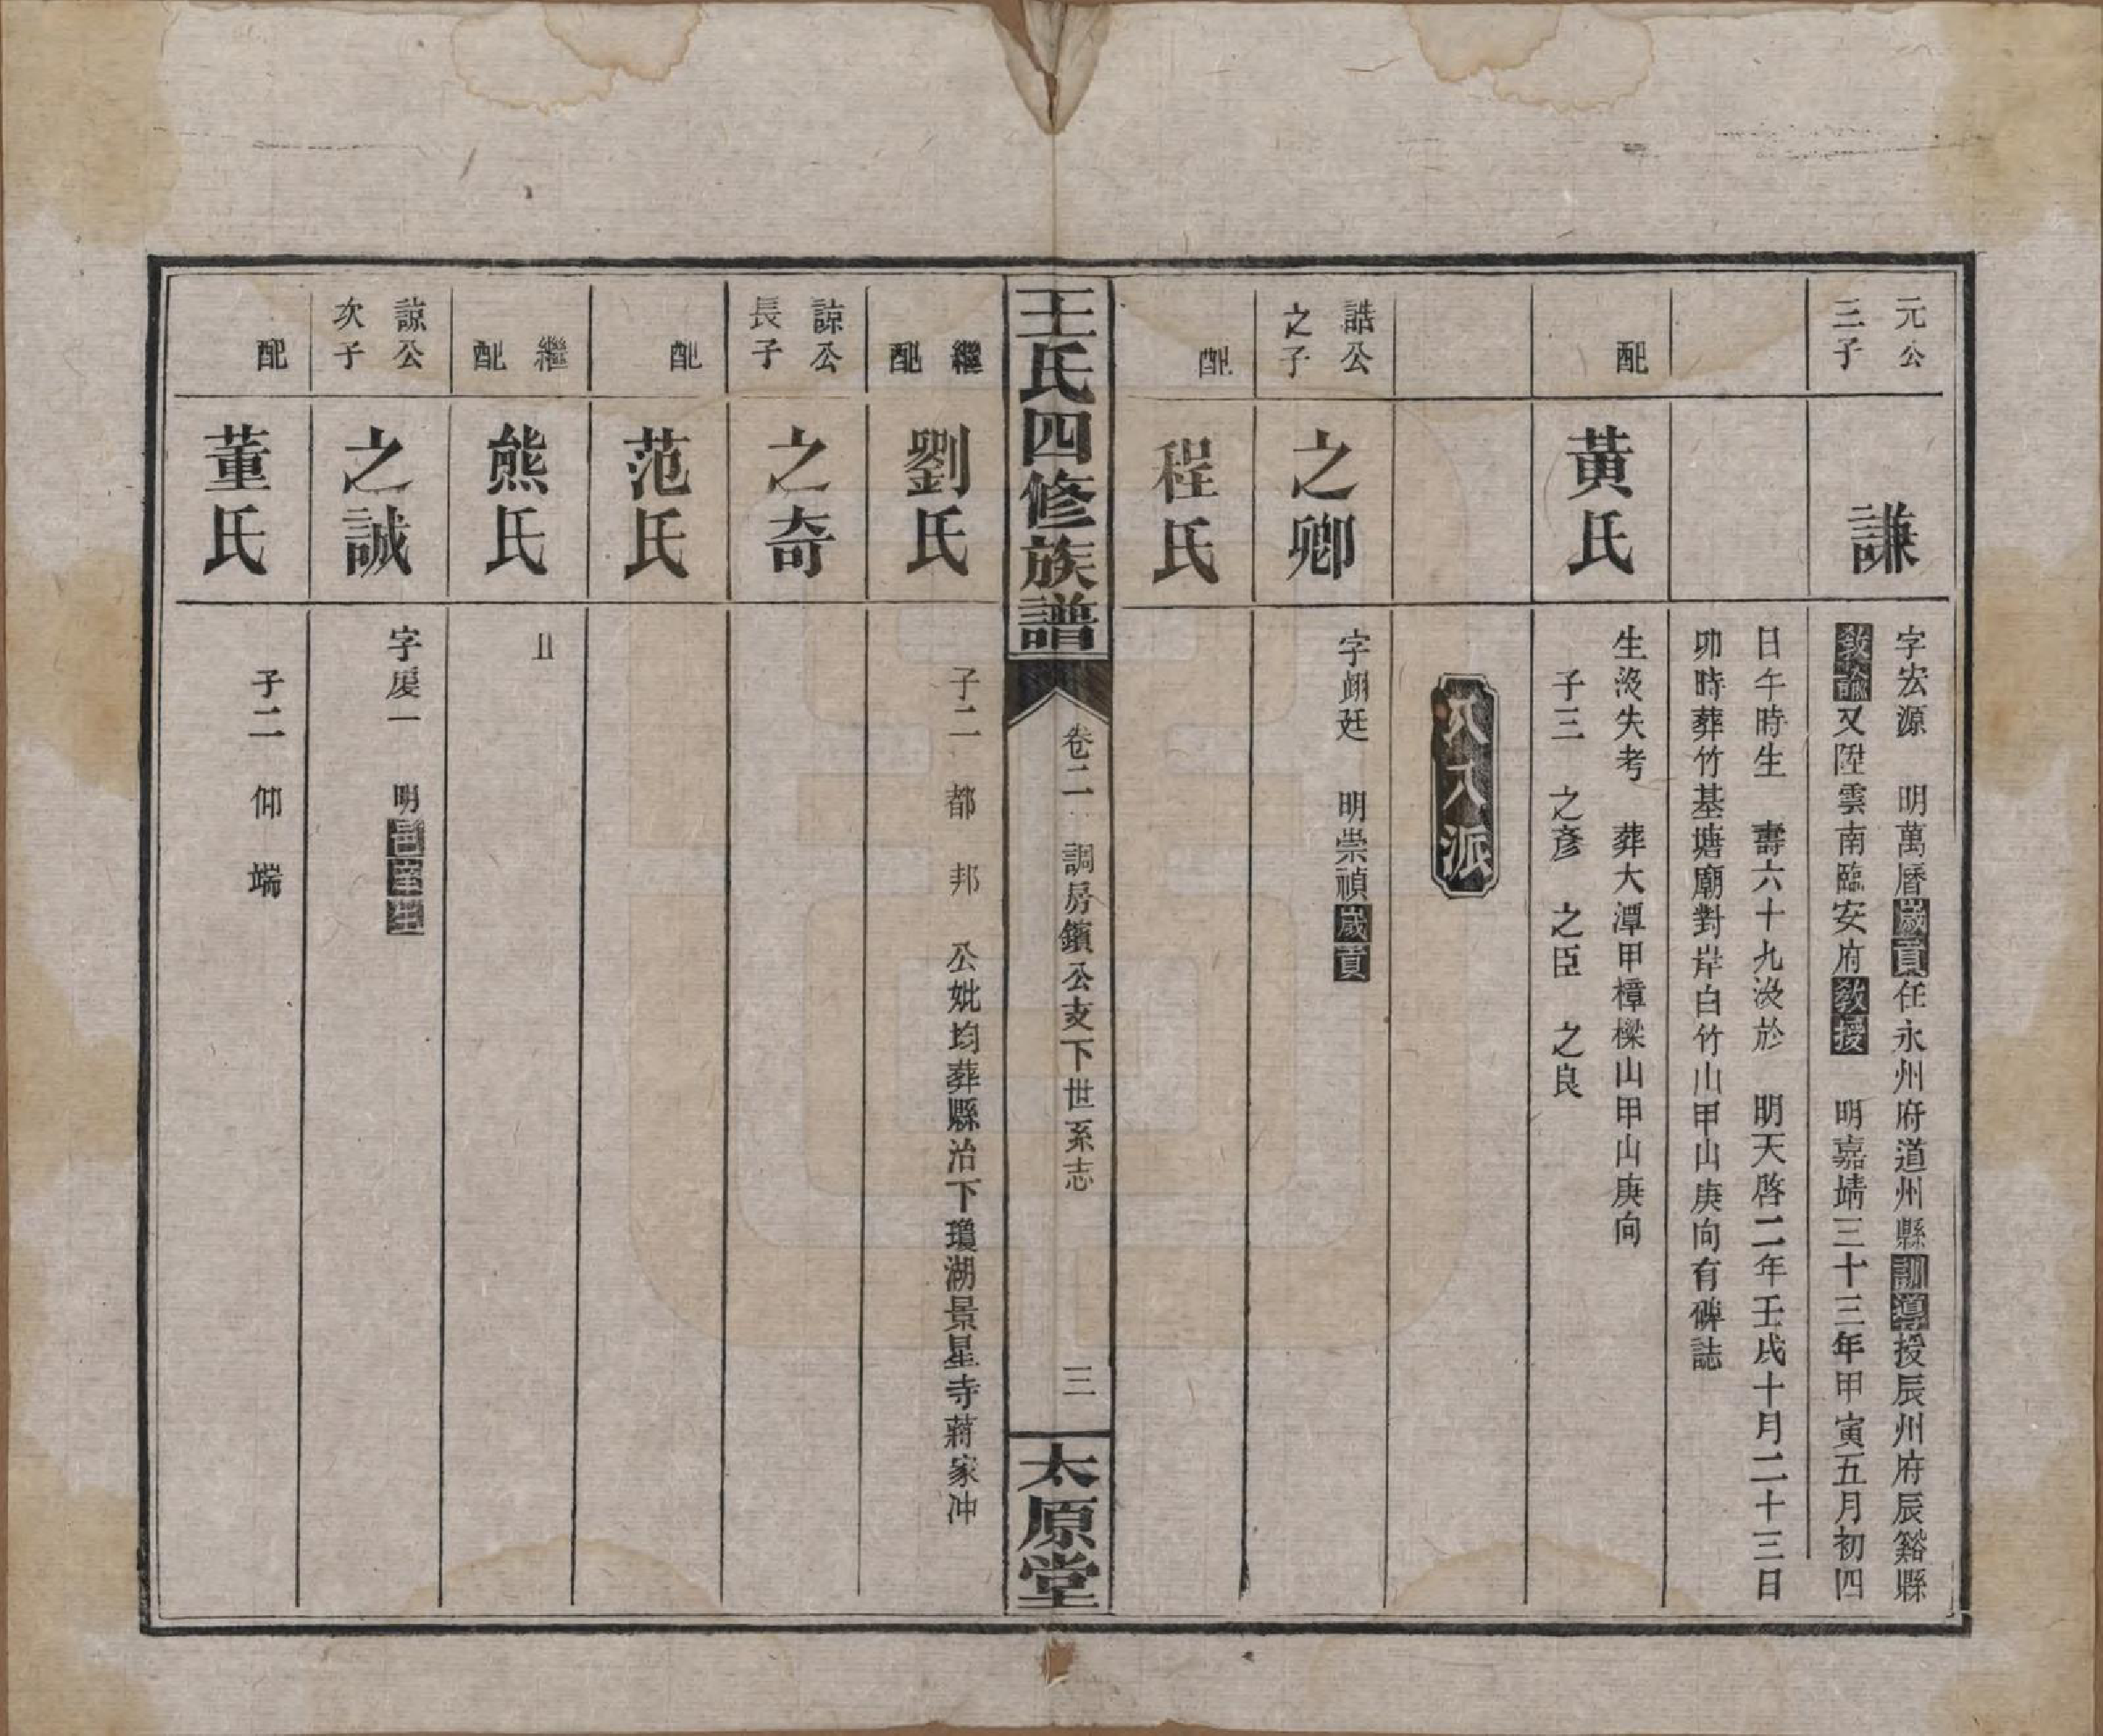 元公
三子
謙
字宏源　明萬曆歲貢任永州府道州縣訓導授辰州府辰谿縣
敎諭又陞雲南臨安府敎授　明嘉靖三十三年甲寅五月初四
日午時生　壽六十九沒於　明天啓二年壬戌十月二十三日
卯時葬竹基塘廟對岸白竹山甲山庚向有碑誌
配
黃氏
生沒失考　葬大潭甲樟樑山甲山庚向
子三　之彥　之臣　之良
八派
誥公
之子
之卿
字翊廷　明崇禎歲貢
配
程氏
王氏四修族譜
卷二　調房鑌公支下世系志
三
太原堂
繼
配
劉氏
子二　都　邦　公妣均葬縣治下瓊湖景星寺蔣家冲
諒公
長子
之奇
配
范氏
繼
配
熊氏
諒公
次子
之誠
字慶一　明邑庠生
配
董氏
子二　仰　端